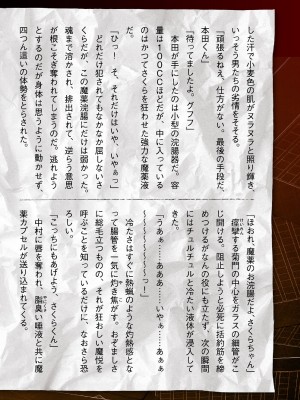 した汗で小麦色の肌がヌラヌラと照り輝き、
いっそう男たちの劣情をそそる。
「頑張るねえ、仕方がない。最後の手段だ、
本田くん」
「待ってましたよ。グフフ」
本田が手にしたのは小型の浣腸器だ。容
量は１００ＣＣほどだが、中に入っている
のはかつてさくらを狂わせた強力な魔薬液
だ。
「ひっ！　そ、それだけはいや、いやぁっ」
どれだけ犯されてもなかなか屈しないさ
くらだが、この魔薬浣腸にだけは弱かった。
魂まで溶かされ、挑出されて、逆らう意思
が根こそぎ奪われてしまうのだ。逃れよう
とするのだが身体は思うように動かせず、
四つん這いの体勢をとらされた。
「ほおれ、魔薬のお浣腸だよ、さくらちゃん」
痙攣する菊門の中心をガラスの細管がこ
じ開ける。阻止しようと必死に括約筋を締
めつけるがなんの役にも立たず、次の瞬間
にはチュルチュルと冷たい液体が浸入して
きた。
「うあぁ……ああぁ……いやぁ……あぁぁ
～～～～～～～～っ！」
冷たさはすぐに熱蝋のような灼熱感とな
って腸管を一気に灼き焦がす。おぞましさ
に総毛立つものの、それが狂おしい魔悦を
呼ぶことを知っているだけに、なおさら恐
ろしい。
「こっちにもあげよう、さくらくん」
中村に唇を奪われ、脂臭い唾液と共に魔
薬カプセルが送り込まれてくる。